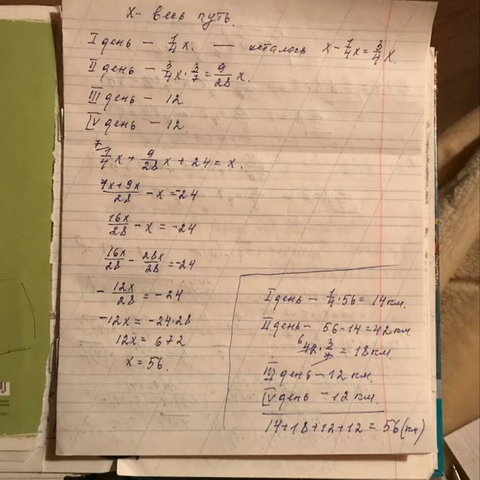 x - весь путь.
I день - 1/4 x. — осталось x - 1/4 x = 3/4 x.
II день - 3/4 x · 3/7 = 9/28 x.
III день - 12
IV день - 12
7
1/4 x + 9/28 x + 24 = x.
7x+9x/28 - x = -24
16x/28 - x = -24
16x/28 - 28x/28 = -24
- 12x/28 = -24
-12x = -24·28
12x = 672
x = 56.
I день - 1/4 · 56 = 14 км.
II день - 56 - 14 = 42 км
6
42 · 3/7 = 18 км
III день - 12 км.
IV день - 12 км.
14 + 18 + 12 + 12 = 56 (км)